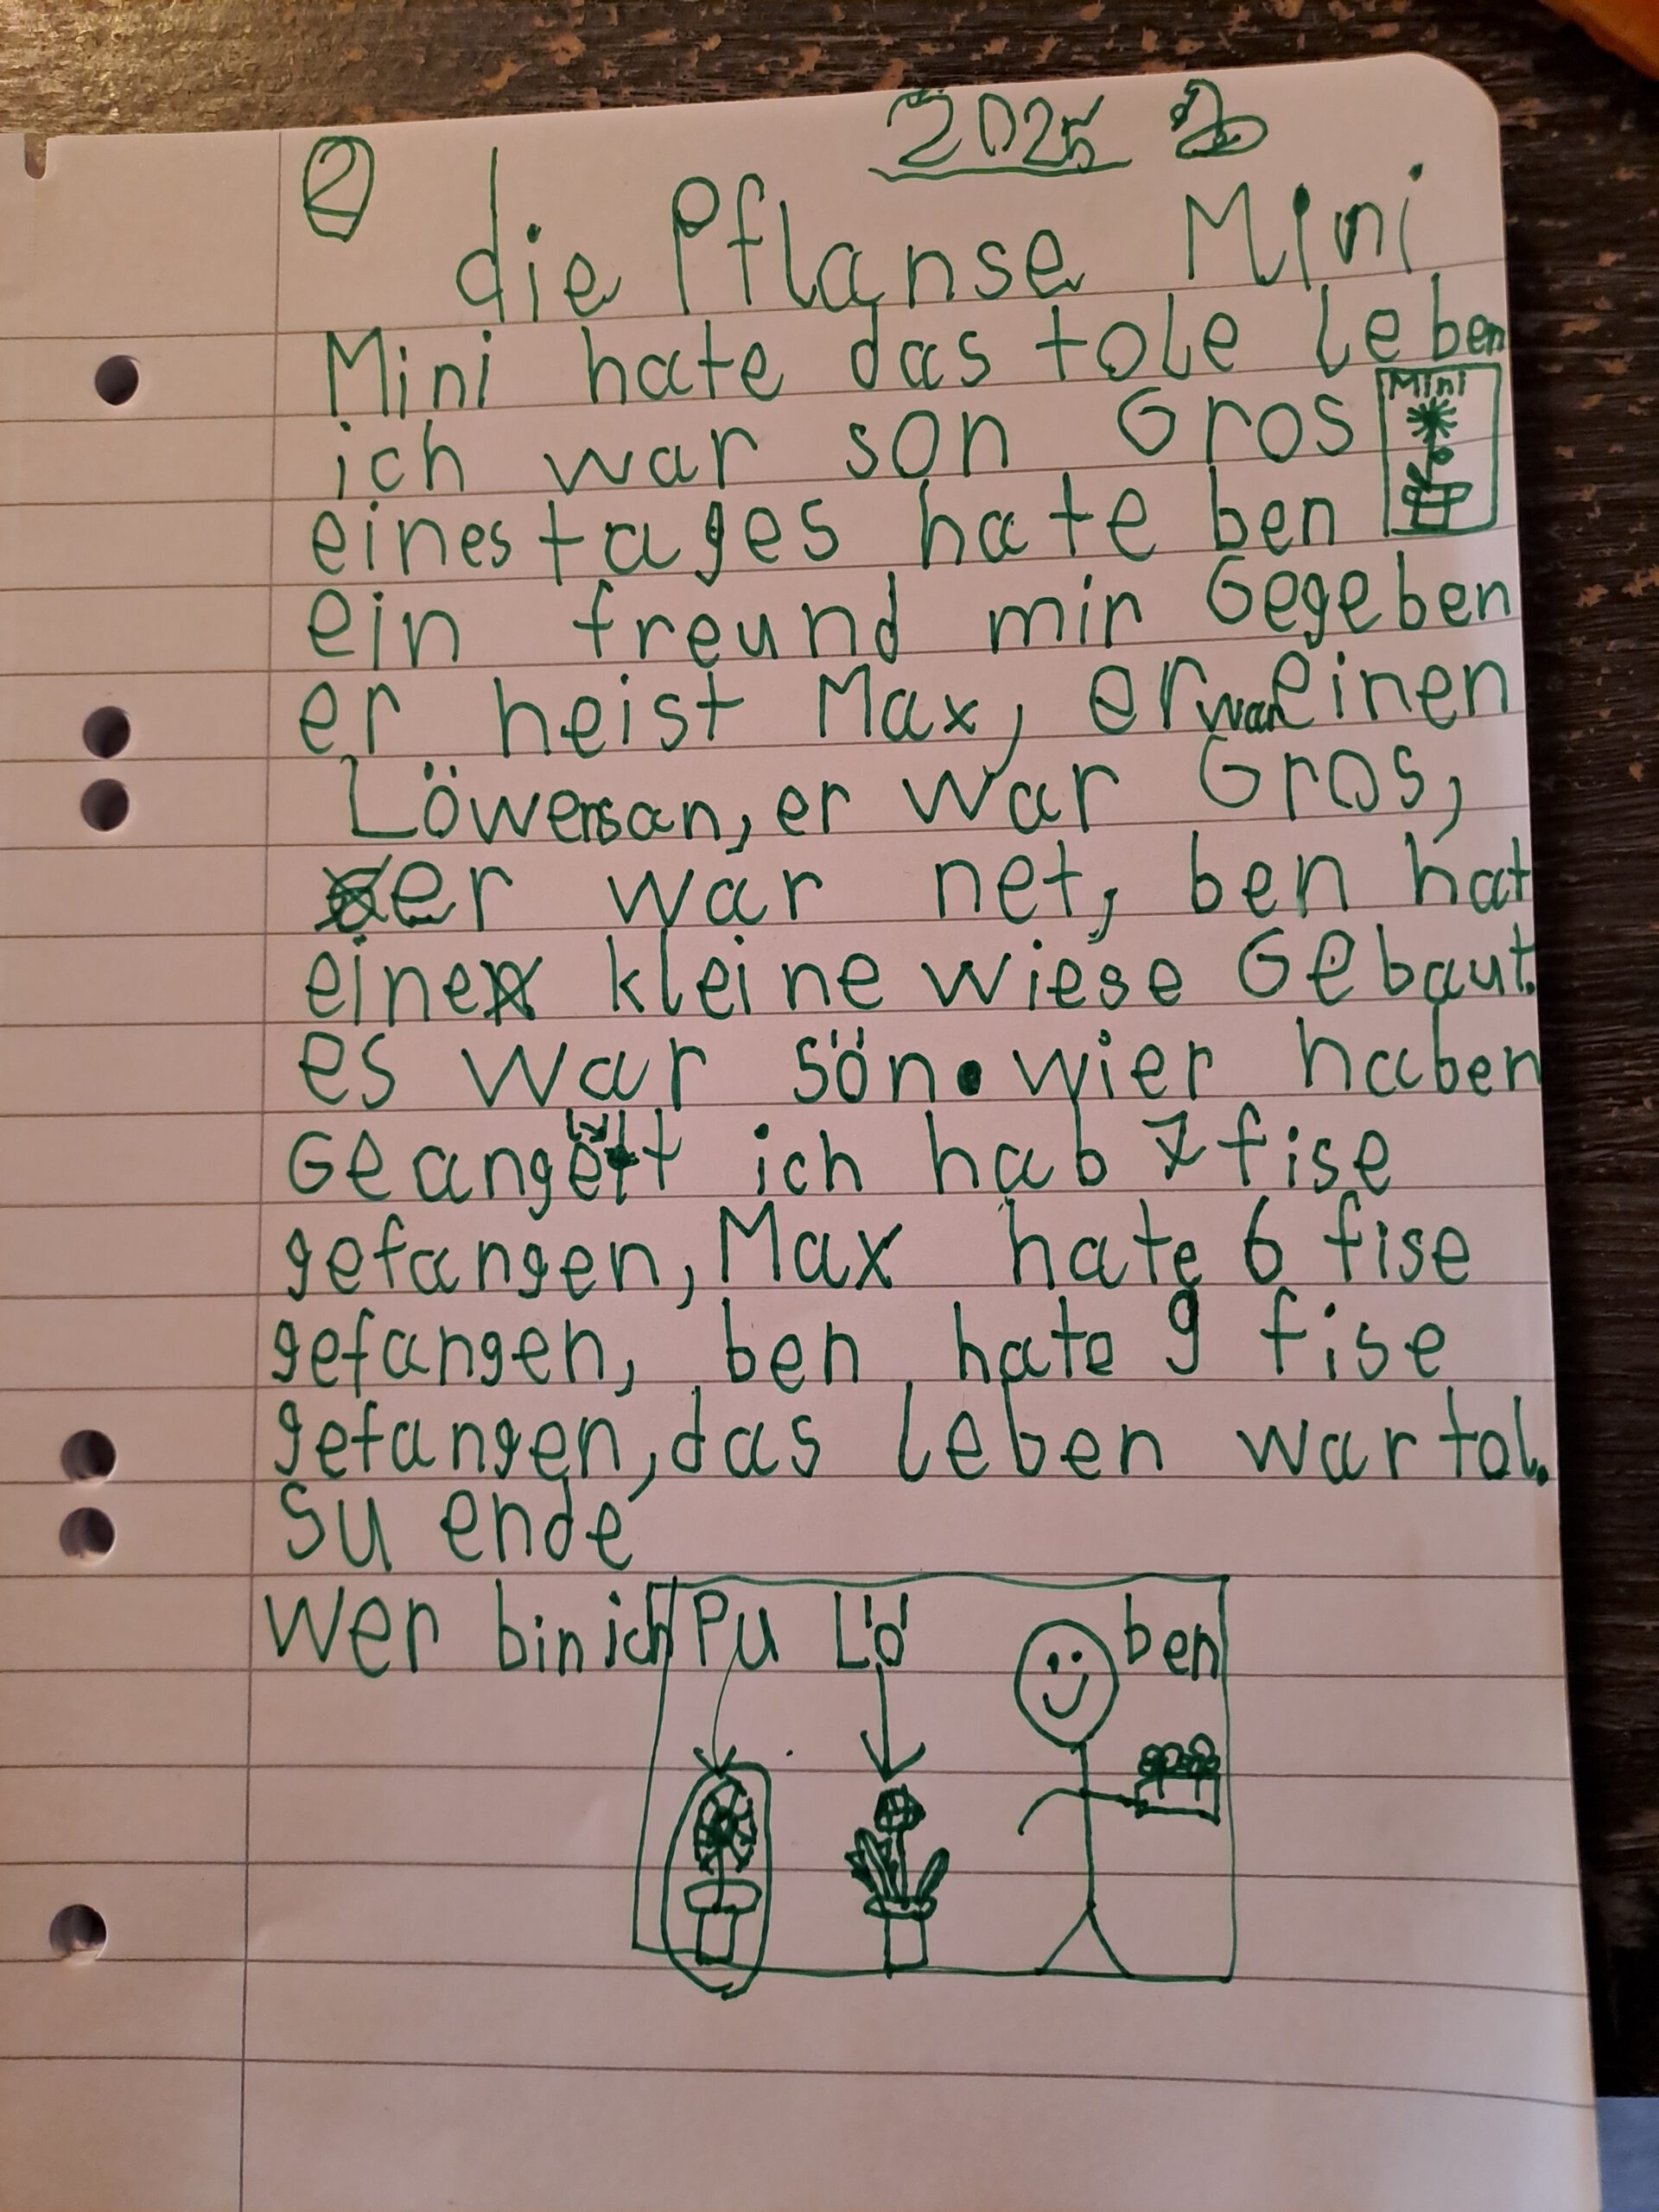 2025
②
die Pflanse Mini
Mini hate das tole leben
ich war son Gros
Mini
einestages hate ben
ein freund mir Gegeben
er heist Max, er war einen
Löwensan, er war Gros,
er war net, ben hat
eine kleine wiese Gebaut.
es war sön. wier haben
Geangelt ich hab 7 fise
gefangen, Max hate 6 fise
gefangen, ben hate 9 fise
gefangen, das leben war tol.
su ende
wer bin ich Pu Lö ben